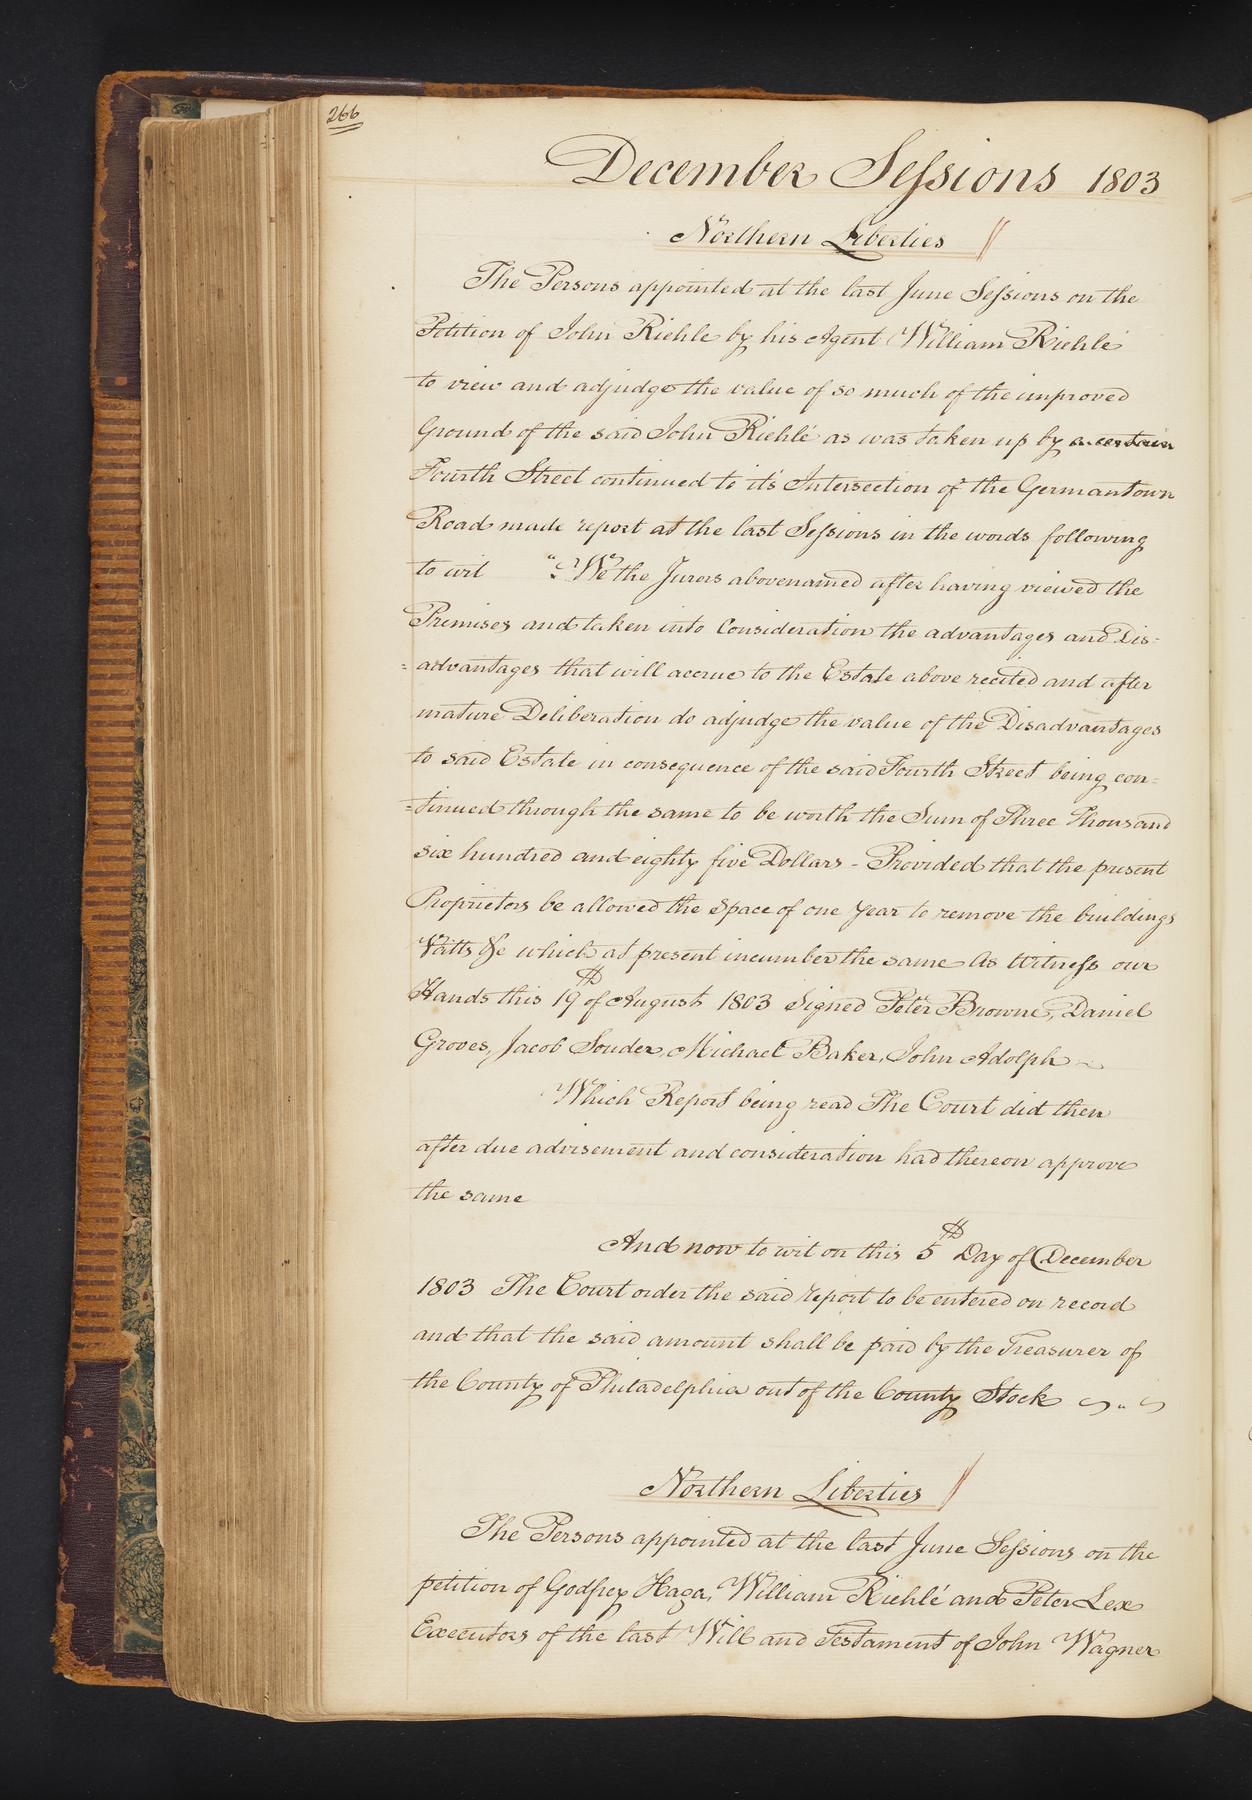 266
December Sessions 1803
Northern Liberties
The Persons appointed at the last June Sessions on the
Petition of John Riehlé by his Agent William Riehlé
to view and adjudge the value of so much of the improved
Ground of the said John Riehlé as was taken up by a certain
Fourth Street continued to it's Intersection of the Germantown
Road made report at the last Sessions in the words following
to wit " We the Jurors abovenamed after having viewed the
Premises and taken into Consideration the advantages and Dis=
=advantages that will accrue to the Estate above recited and after
mature Deliberation do adjudge the value of the Disadvantages
to said Estate in consequence of the said Fourth Street being con=
=tinued through the same to be worth the Sum of Three Thousand
six hundred and eighty five Dollars - Provided that the present
Proprietors be allowed the Space of one Year to remove the buildings
Vatts &c which at present incumber the same As Witness our
Hands this 19th of August 1803 Signed Peter Browne, Daniel
Groves, Jacob Souder, Michael Baker, John Adolph
Which Report being read The Court did then
after due advisement and consideration had thereon approve
the same
And now to wit on this 5th Day of December
1803 The Court order the said report to be entered on record
and that the said amount shall be paid by the Treasurer of
the County of Philadelphia out of the County Stock
Northern Liberties
The Persons appointed at the last June Sessions on the
petition of Godfrey Haga, William Riehlé and Peter Lex
Executors of the last Will and Testament of John Wagner